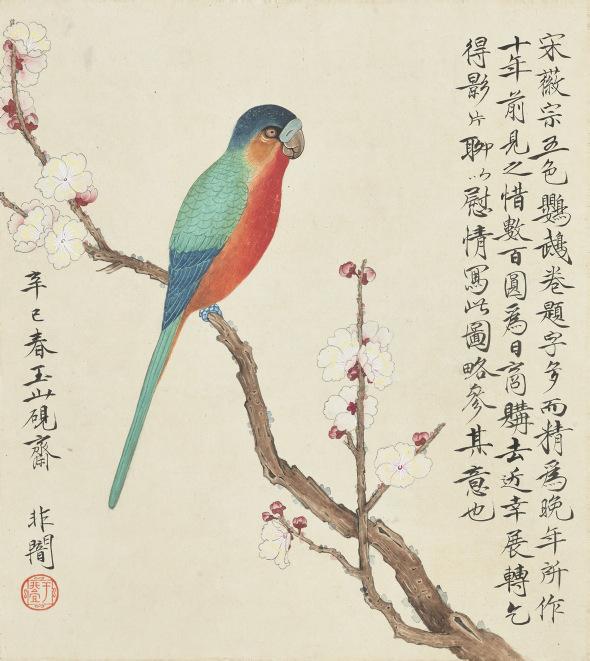 宋薇宗五色鸚鵡卷題字多而精為晚年所作
十年前見之惜數百圓為日商購去近幸展轉乞
得影片聊以慰情寫此圖略參其意也
辛巳春玉山硯齋
非闇